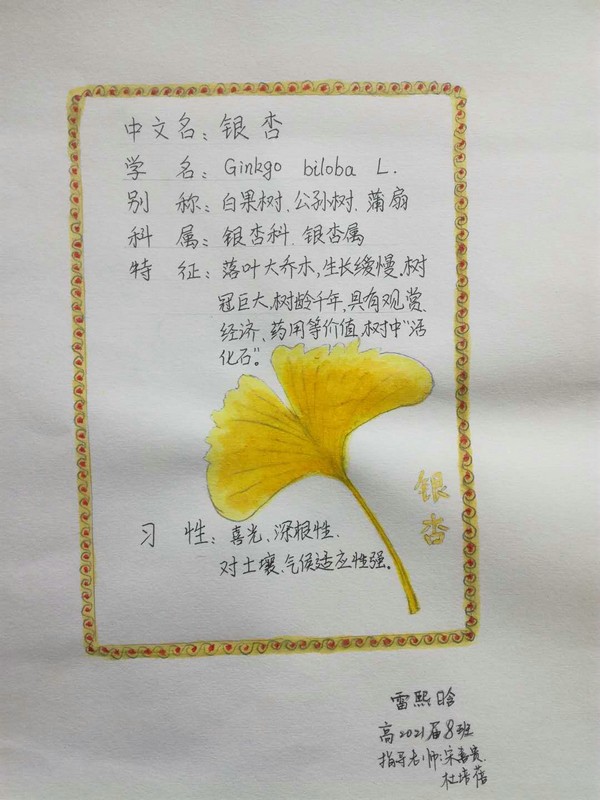 中文名：银杏
学 名：Ginkgo biloba L.
别 称：白果树、公孙树、蒲扇
科 属：银杏科、银杏属
特 征：落叶大乔木,生长缓慢、树
冠巨大,树龄千年,具有观赏、
经济、药用等价值,树中“活
化石”。
银杏
习 性：喜光、深根性、
对土壤、气候适应性强。
雷熙晗
高2021届8班
指导老师:宋善贵
杜蓓